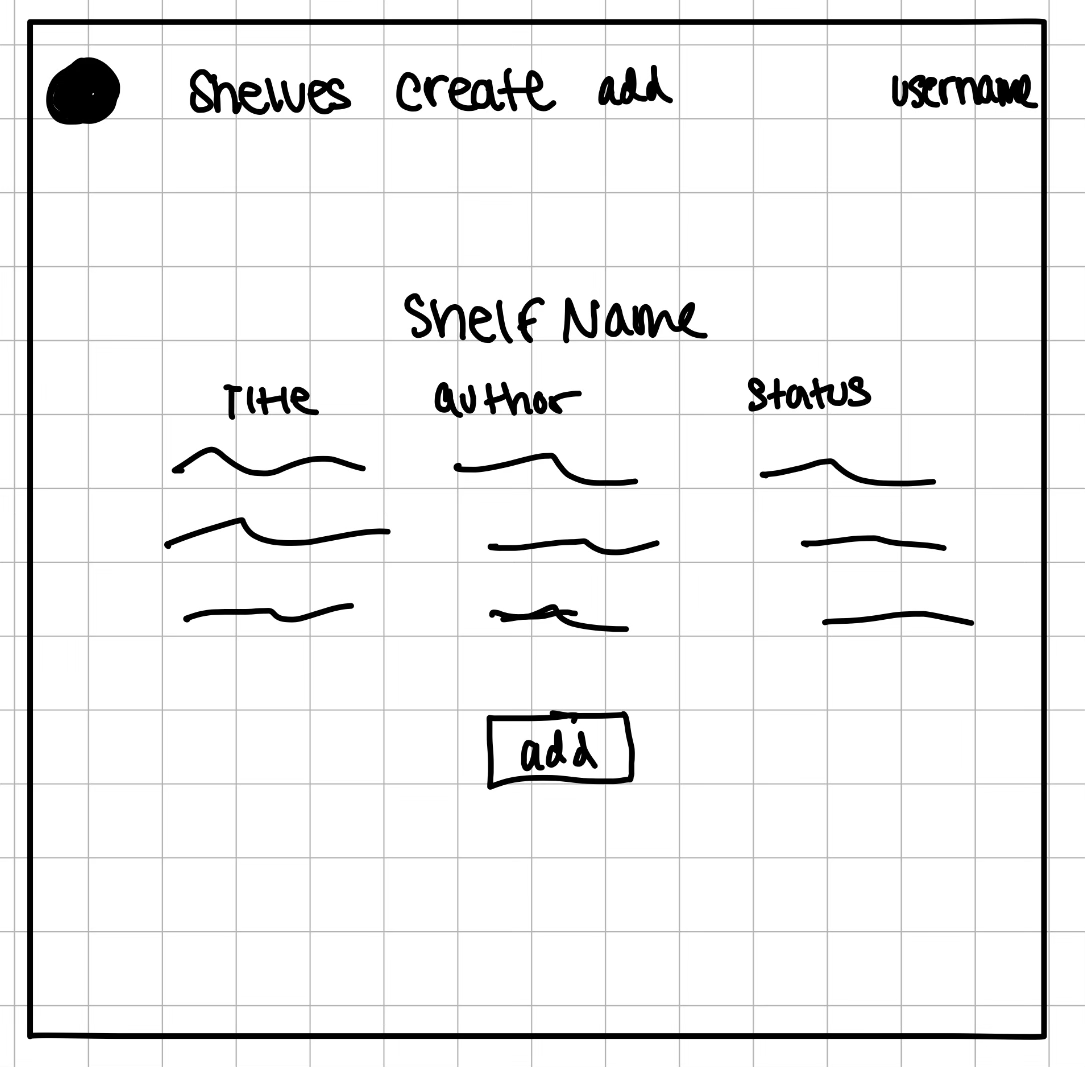 Shelves create add username
Shelf Name
Title author status
add